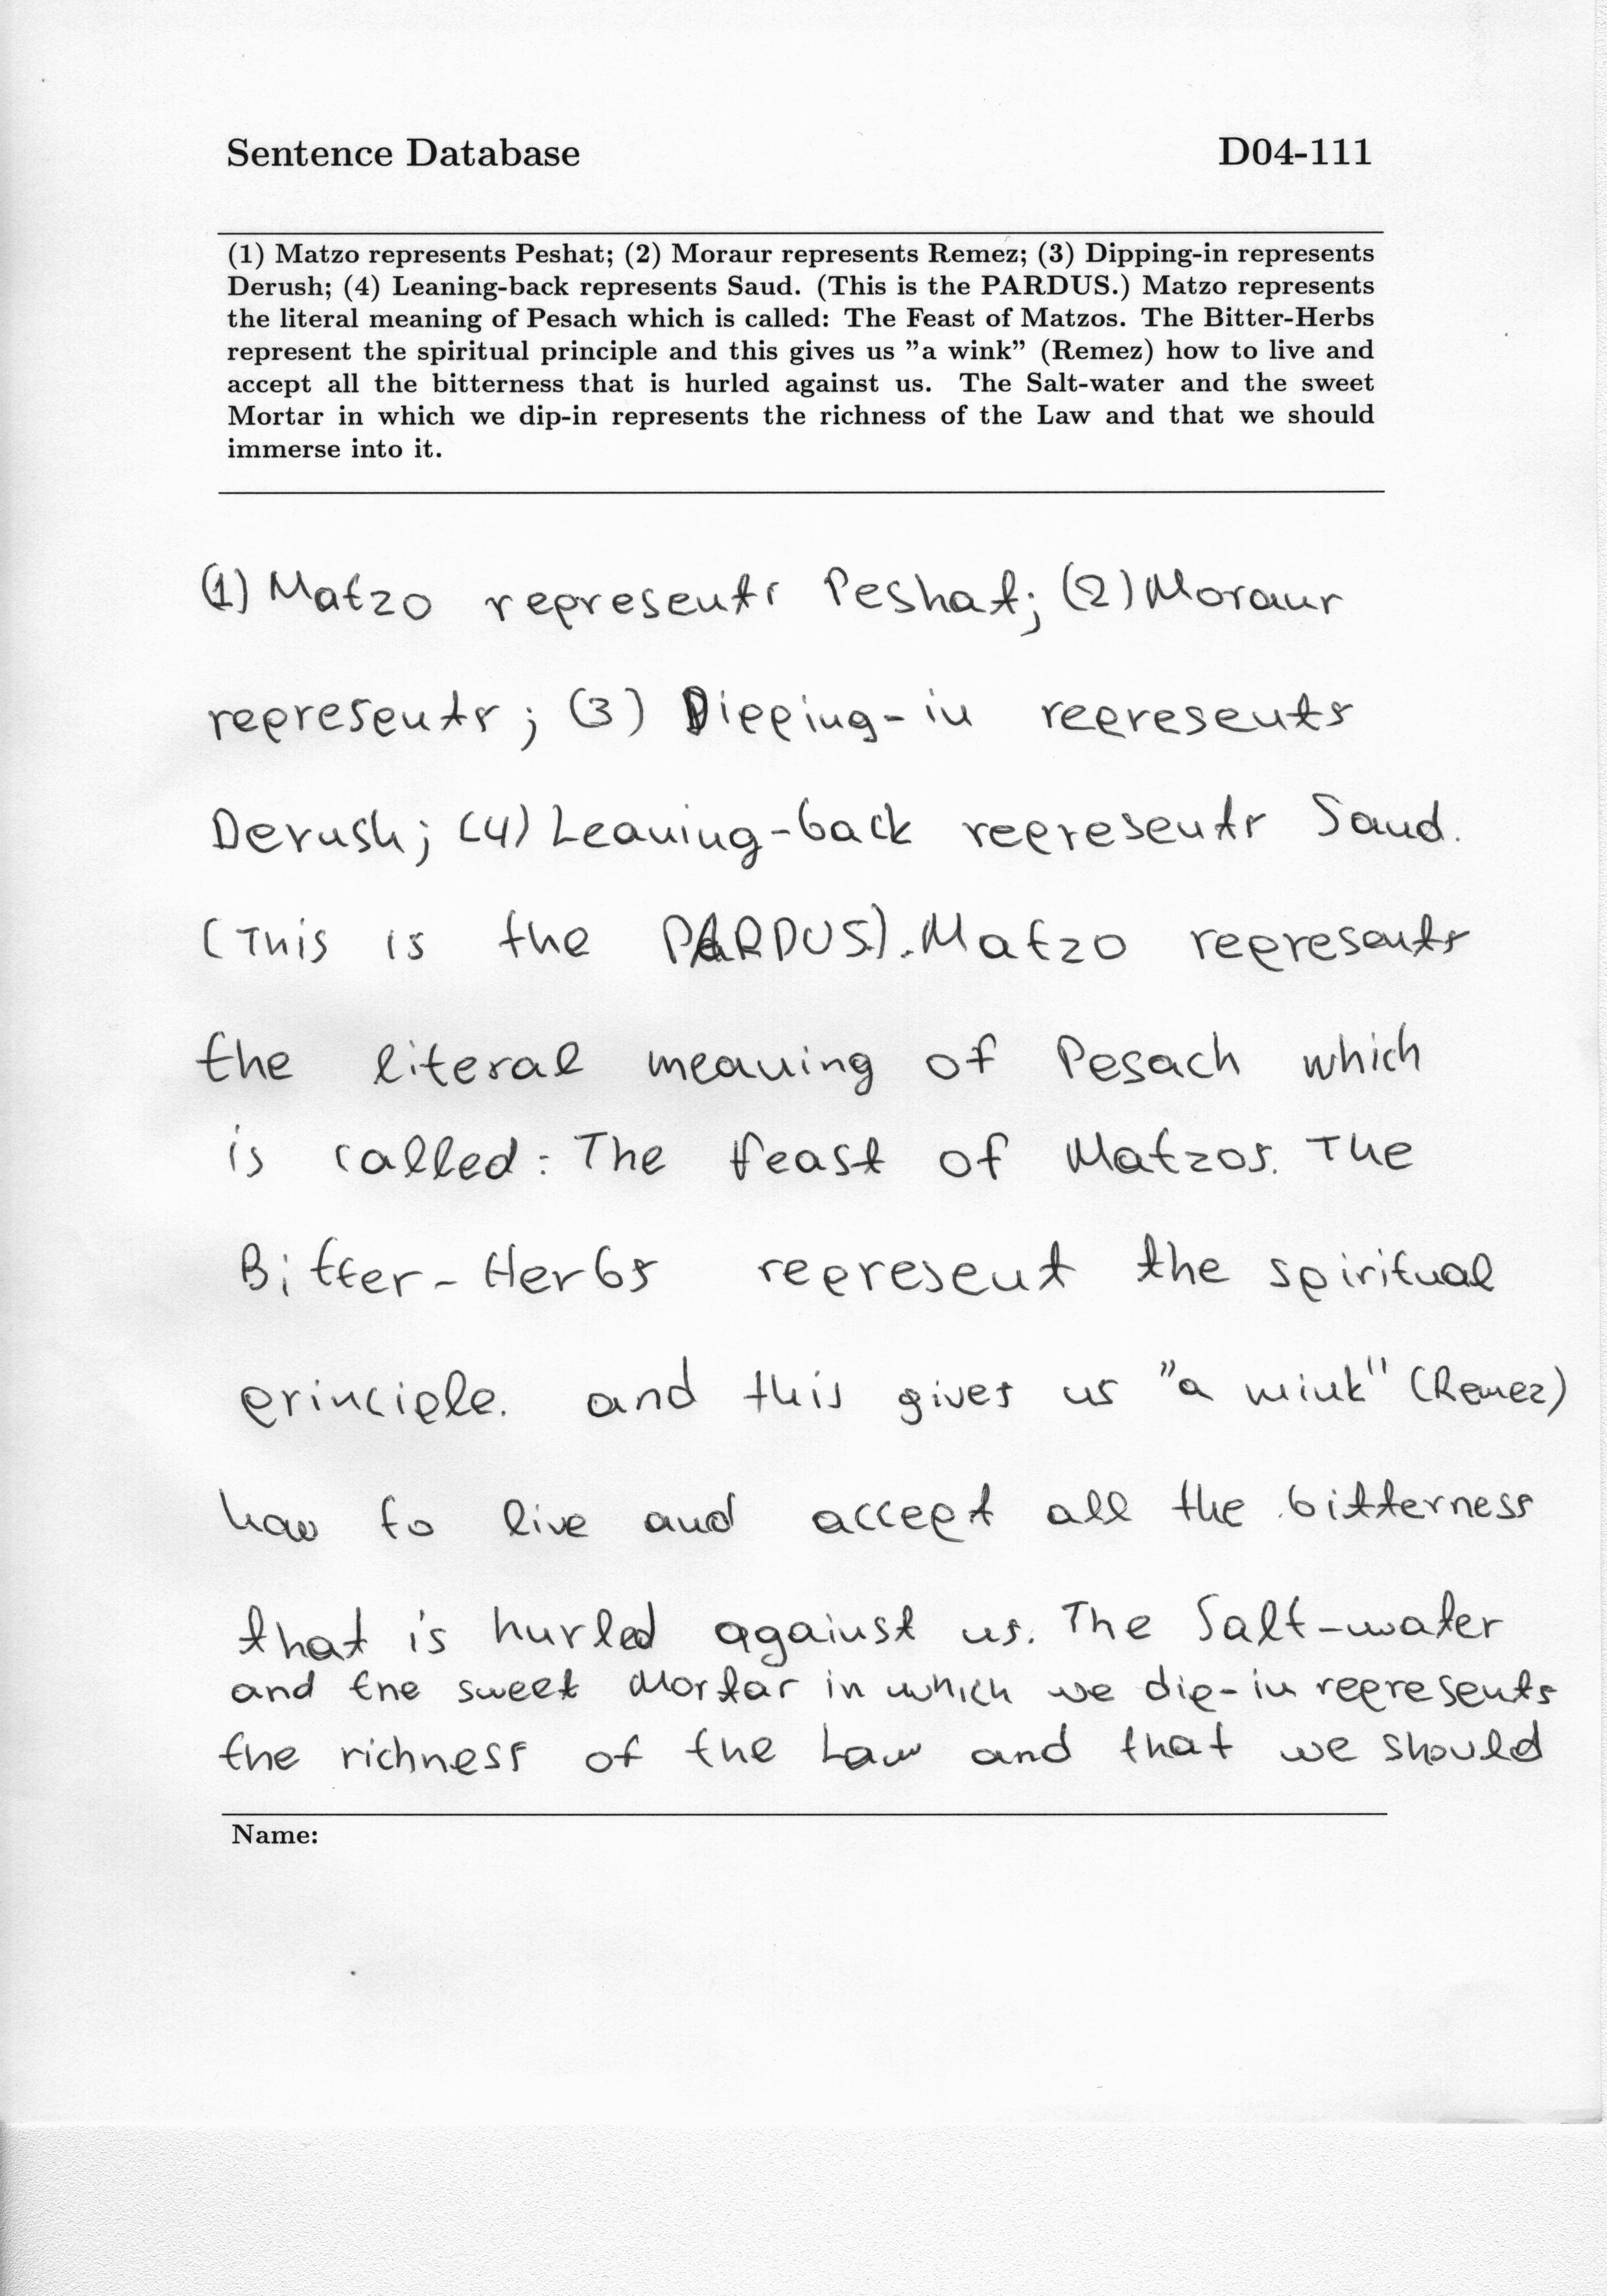 Sentence Database D04-111
(1) Matzo represents Peshat; (2) Moraur represents Remez; (3) Dipping-in represents
Derush; (4) Leaning-back represents Saud. (This is the PARDUS.) Matzo represents
the literal meaning of Pesach which is called: The Feast of Matzos. The Bitter-Herbs
represent the spiritual principle and this gives us ”a wink” (Remez) how to live and
accept all the bitterness that is hurled against us. The Salt-water and the sweet
Mortar in which we dip-in represents the richness of the Law and that we should
immerse into it.
(1) Matzo represents Peshat; (2) Moraur
represents ; (3) Dipping-in represents
Derush; (4) Leaning-back represents Saud.
(This is the PARDUS). Matzo represents
the literal meaning of Pesach which
is called: The Feast of Matzos. The
Bitter-Herbs represent the spiritual
principle. and this gives us "a wink" (Remez)
how to live and accept all the bitterness
that is hurled against us. The Salt-water
and the sweet Mortar in which we dip-in represents
the richness of the Law and that we should
Name: